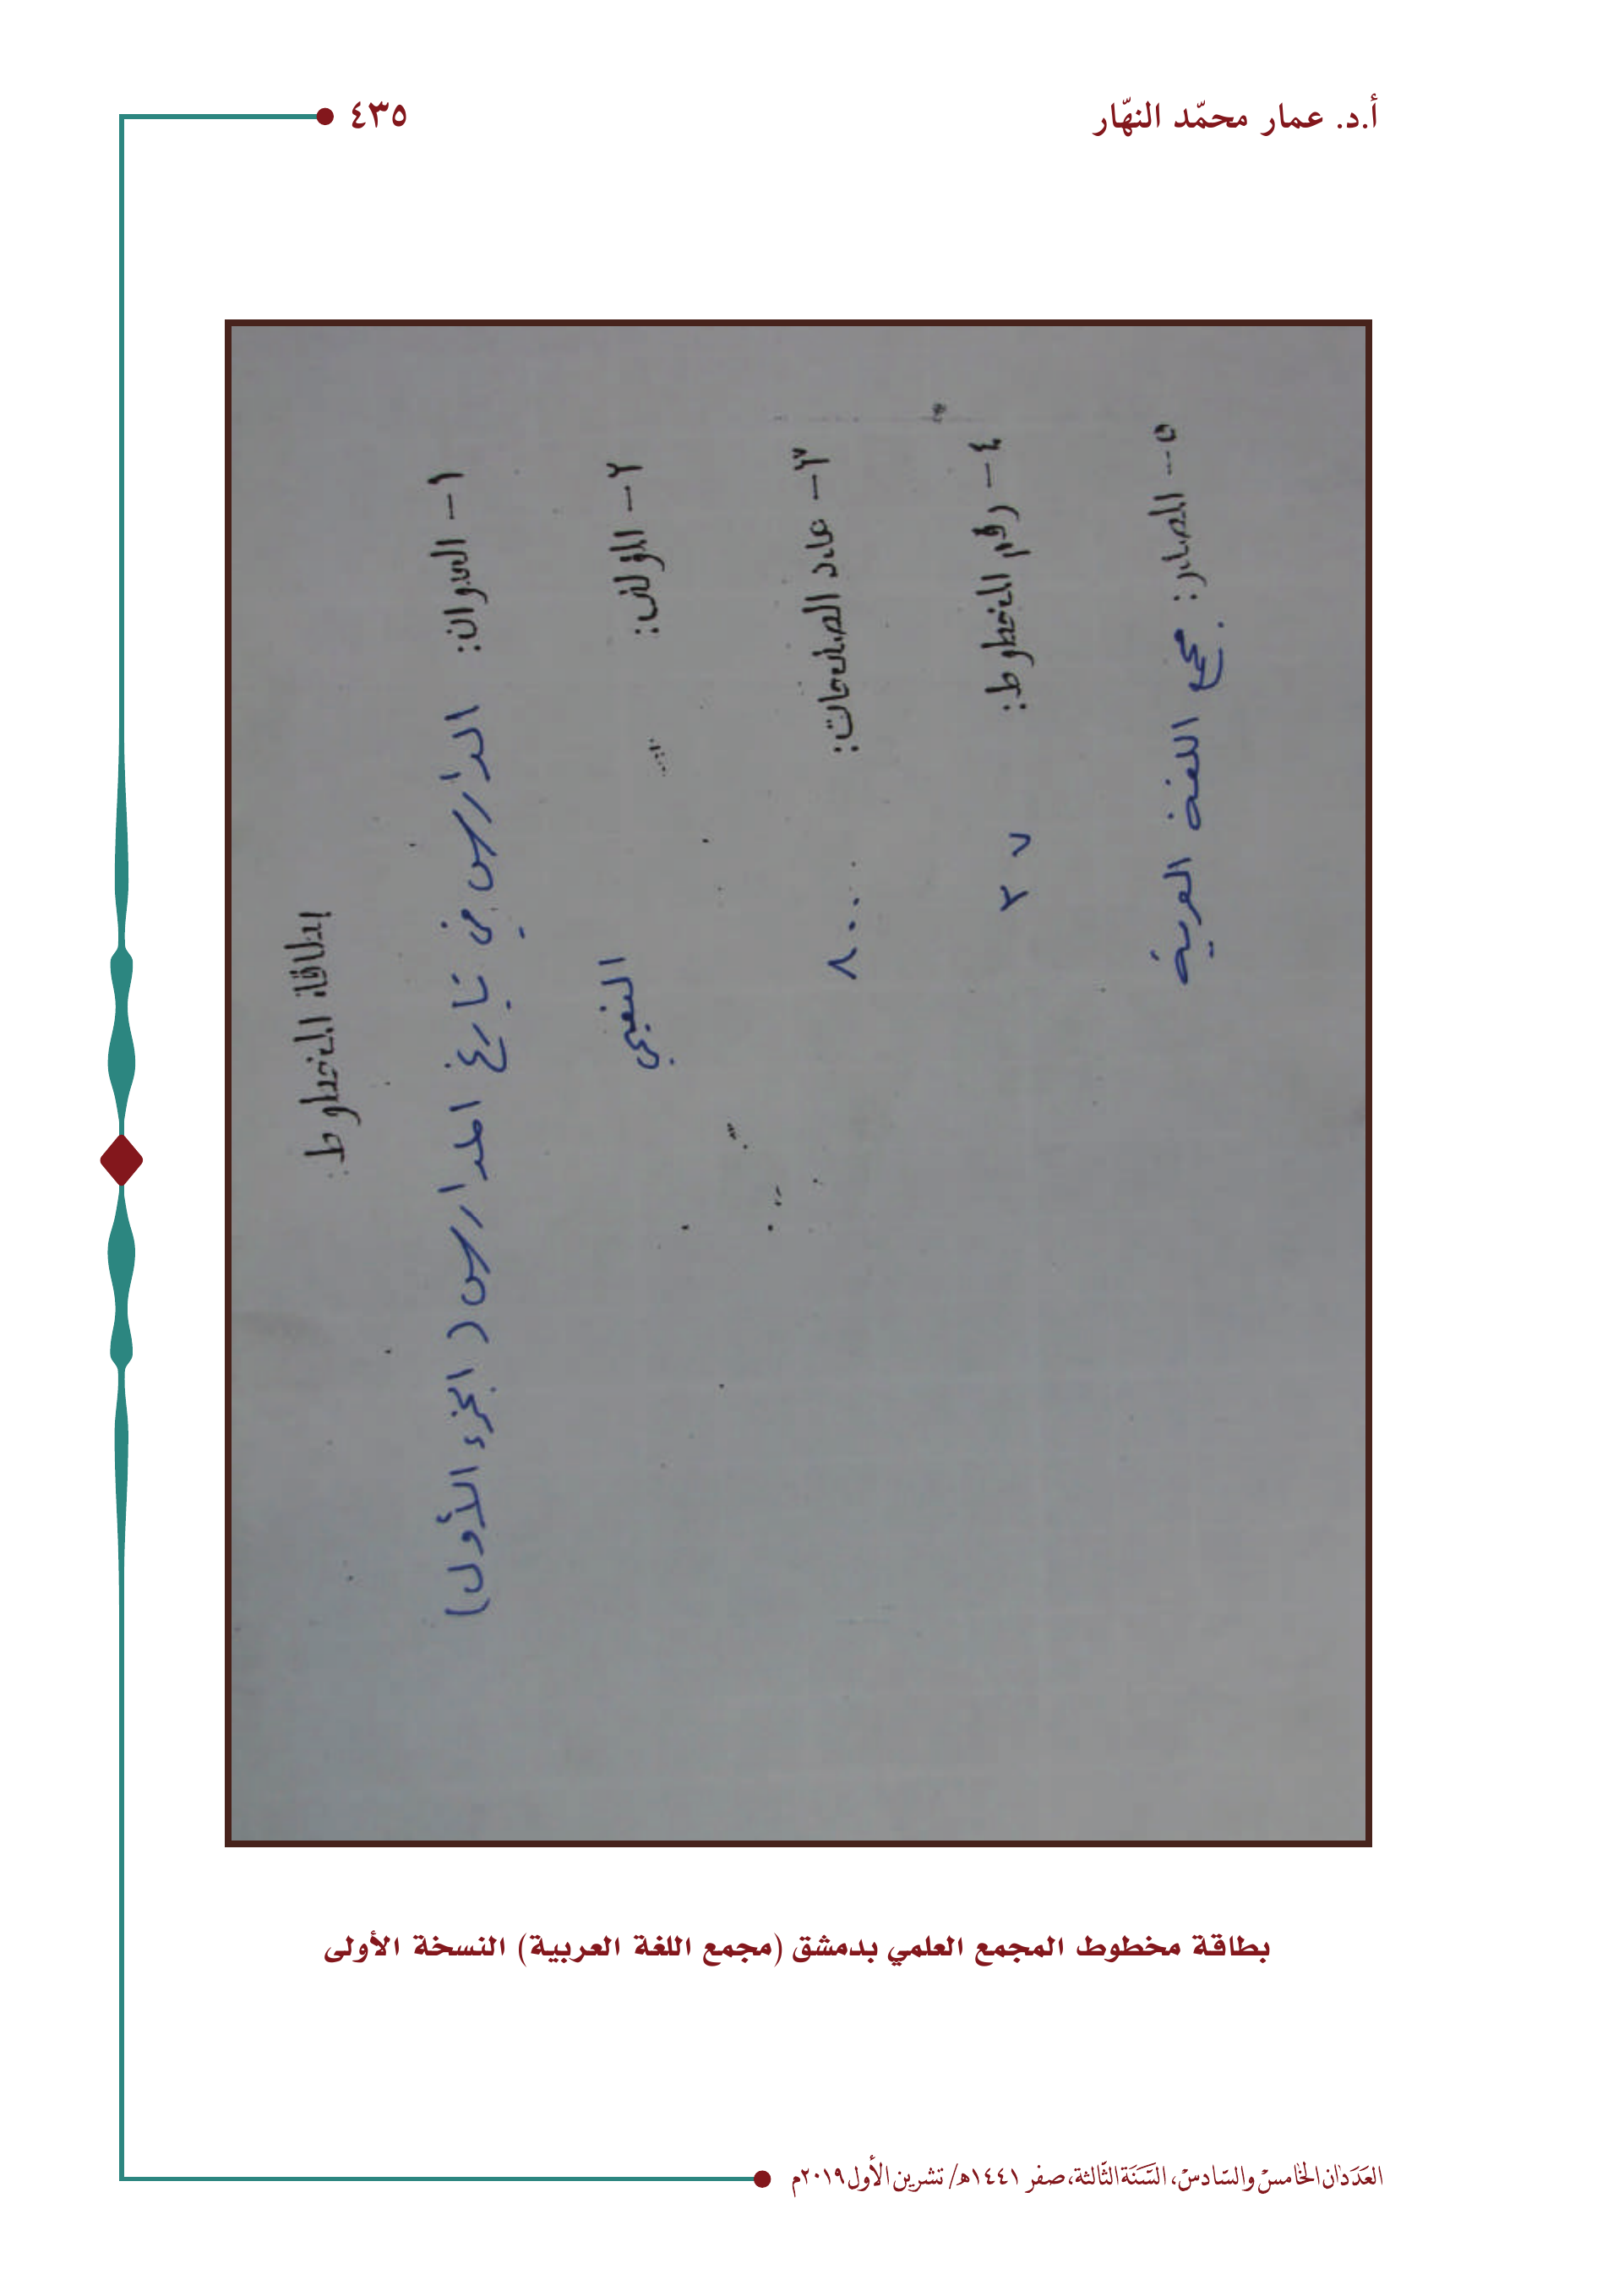 أ.د. عمار محمّد النهّار
٤٣٥
بطاقة المخطوط
١- العنوان: الدارس في تاريخ المدارس (الجزء الأول)
٢- المؤلف: النعيمي
٣- عدد الصفحات:
٤- رقم المخطوط: ٢٧
٥- المصدر: مجمع اللغة العربية
بطاقة مخطوط المجمع العلمي بدمشق (مجمع اللغة العربية) النسخة الأولى
العَدَدان الخامسْ والسّادسْ، السَّنَة الثَّالثة، صفر ١٤٤١هـ/ تشرين الأول ٢٠١٩م